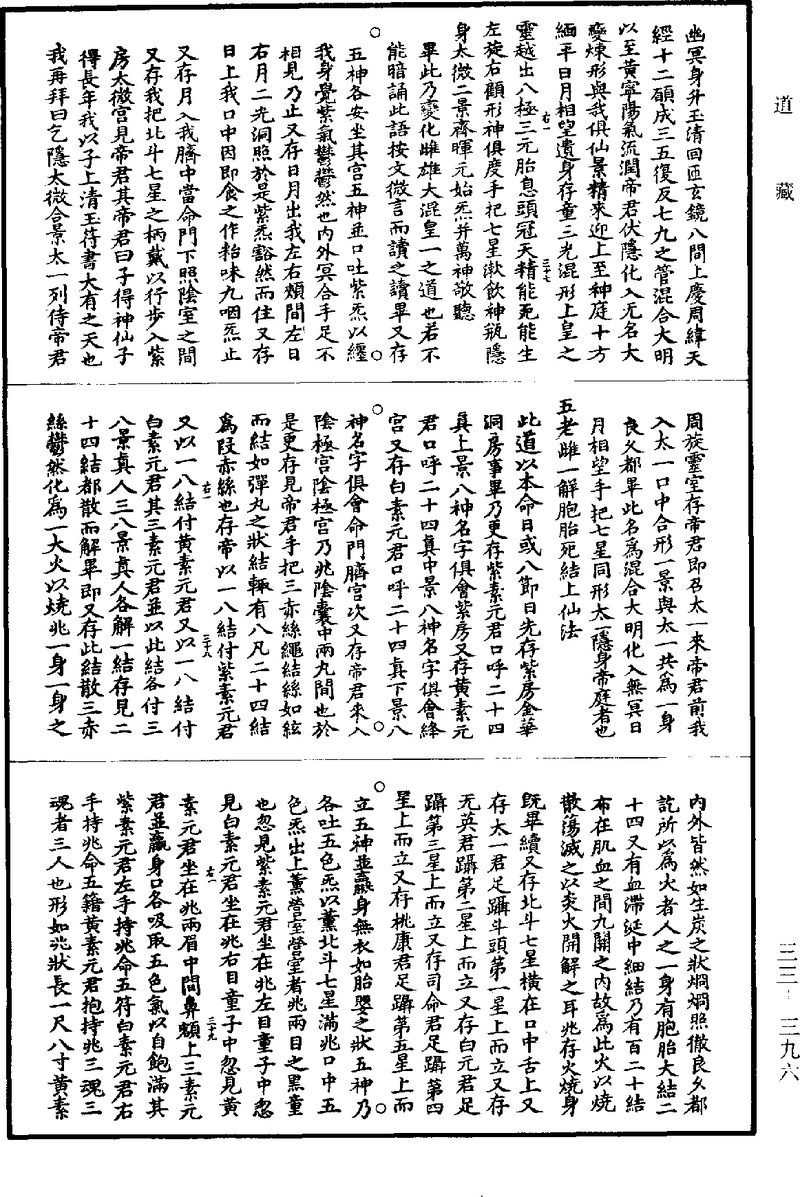 道藏
幽冥身升玉清回匝玄鏡八間上慶周緯天
經十二願成三五復反七九之管混合大明
以至黃寧陽氣流潤帝君伏隱化入无名大
變煉形與我俱仙景精來迎上至种庭十方
緬平日月相望遺身存童三光混形上皇之
靈越出八極三元胎息頭冠天精能死能生
左旋右顧形神俱度手把七星漱飲神瓶隱
身太微二景齊暉元始炁并萬神敬聽
畢此乃變化雌雄大混皇一之道也若不
能暗誦此語按文微言而讀之讀畢又存
五神各安坐其宮五神並口吐紫炁以纏
我身覺紫氣鬱鬱然也內外冥合手足不
相見乃止又存日月出我左右頰間左日
右月二光洞照於是紫炁豁然而住又存
日上我口中因即食之作粘味九咽炁止
又存月入我臍中當命門下照陰室之間
又存我把北斗七星之柄戴以行步入紫
房太微宮見帝君其帝君曰子得神仙子
得長年我以子上清玉符書大有之天也
我再拜曰乞隱太微合景太一列侍帝君
周旋靈室存帝君即召太一來帝君前我
入太一口中合形一景與太一共為一身
良久都畢此名為混合大明化入無冥日
月相望手把七星同形太一隱身帝庭者也
五老雌一解胞胎死結上仙法
此道以本命日或八節日先存紫房金華
洞房事畢乃更存紫素元君口呼二十四
真上景八神名字俱會紫房又存黃素元
君口呼二十四真中景八神名字俱會絳
宮又存白素元君口呼二十四真下景八
神名字俱會命門臍宮次又存帝君來入
陰極宮陰極宮乃兆陰囊中兩丸間也於
是更存見帝君手把三赤絲繩結絲如絃
而結如彈丸之狀結輒有八凡二十四結
為段赤絲也存帝以一八結付紫素元君
又以一八結付黃素元君又以一八結付
白素元君其三素元君並以此結各付三
八景真人三八景真人各解一結存見二
十四結都散而解畢即又存此結散三赤
絲鬱然化為一大火以燒兆一身一身之
內外皆然如生炭之狀烱烱照徹良久都
訖所以為火者人之一身有胞胎大結二
十四又有血滯延中細結乃有百二十結
布在肌血之間九關之內故為此火以燒
散蕩滅之以炎火開解之耳兆存火燒身
既畢續又存北斗七星橫在口中舌上又
存太一君足躡斗頭第一星上而立又存
无英君躡第二星上而立又存白元君足
躡第三星上而立又存司命君足躡第四
星上而立又存桃康君足躡第五星上而
立五神並羸身無衣如胎嬰之狀五神乃
各吐五色炁以薰北斗七星滿兆口中五
色炁出上薰營室營室者兆兩目之黑童
也忽見紫素元君坐在兆左目童子中忽
見白素元君坐在兆右目童子中忽見黃
素元君坐在兆兩眉中間鼻頞上三素元
君並羸身口各吸取五色氣以自飽滿其
紫素元君左手持兆命五符白素元君右
手持兆命五籍黃素元君抱持兆三魂三
魂者三人也形如兆狀長一尺八寸黃素
三三-三九六